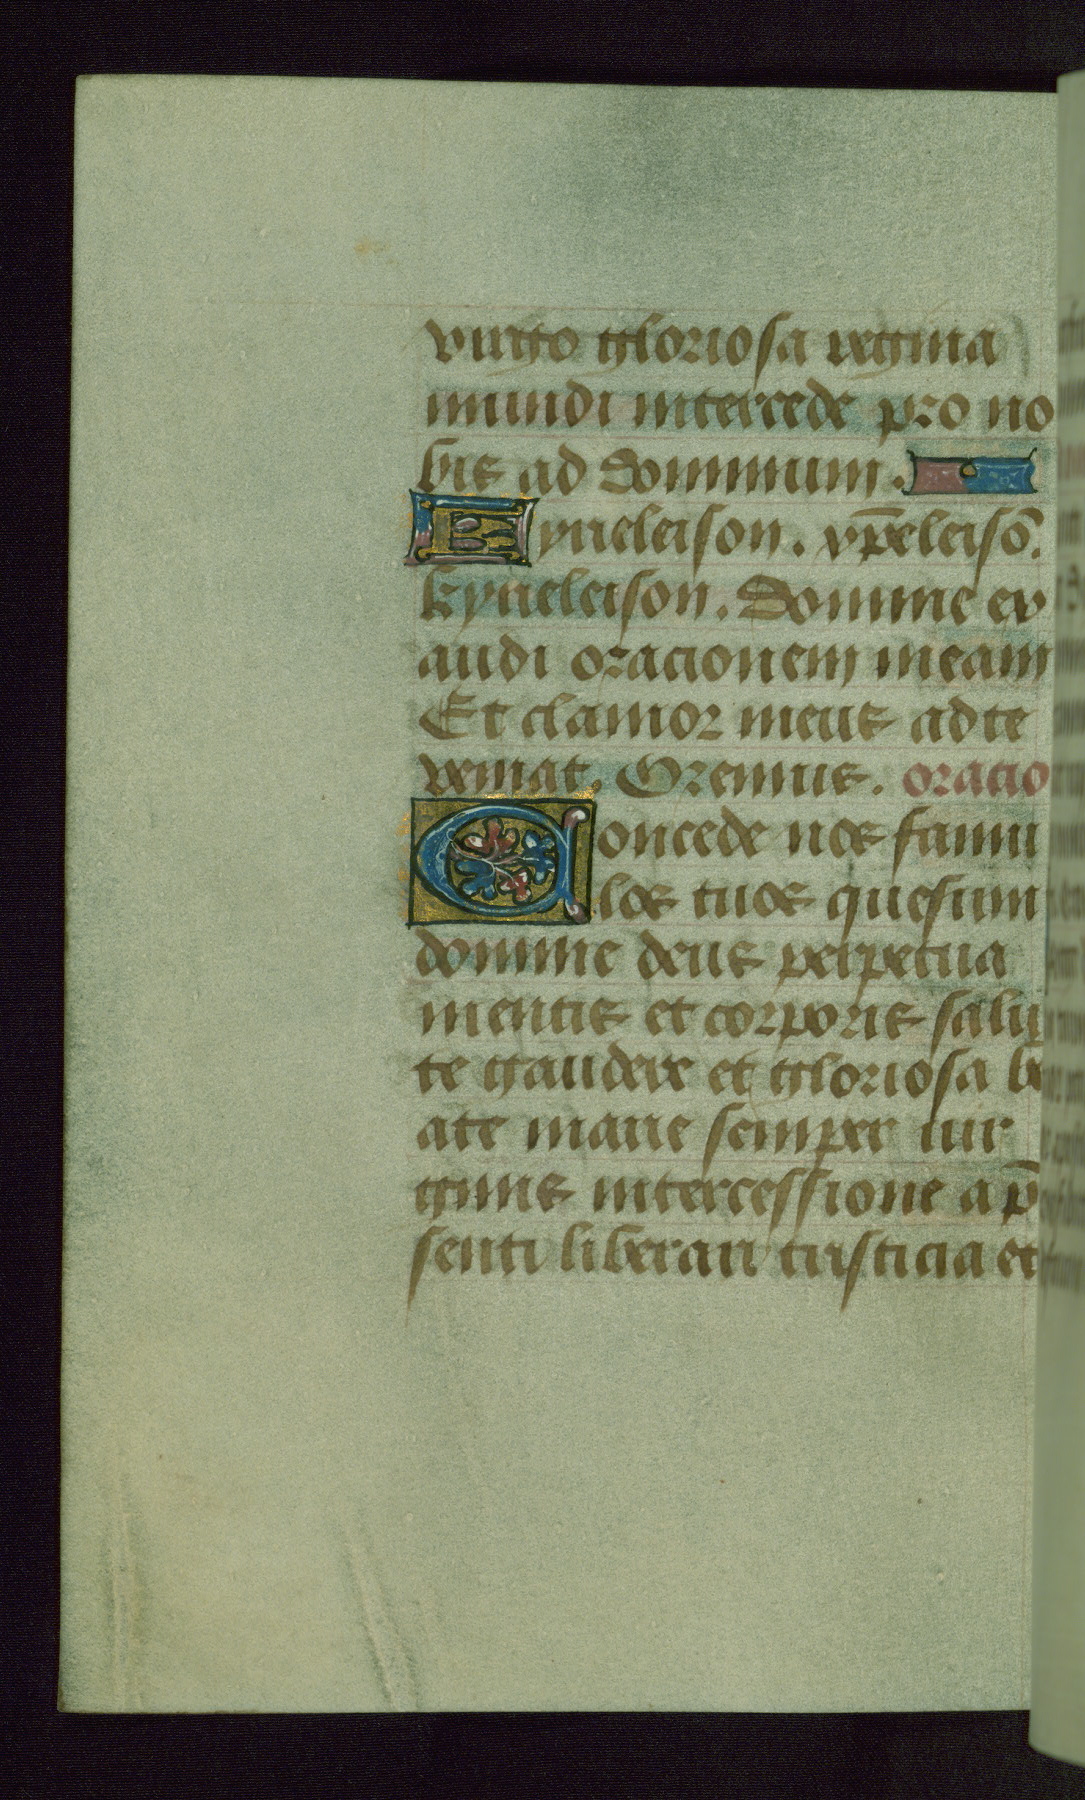 virgo gloriosa regina
mundi intercede pro no
bis ad dominum.
Kyrieleison. xp̄eleisō.
kyrieleison. Domine ex
audi oracionem meam
Et clamor meus ad te
veniat. Oremus. oracio
Concede nos famu
los tuos quesum
domine deus perpetua
mentis et corporis salu
te gaudere et gloriosa be
ate marie semper uir
ginis intercessione a p̄
senti liberari tristicia et